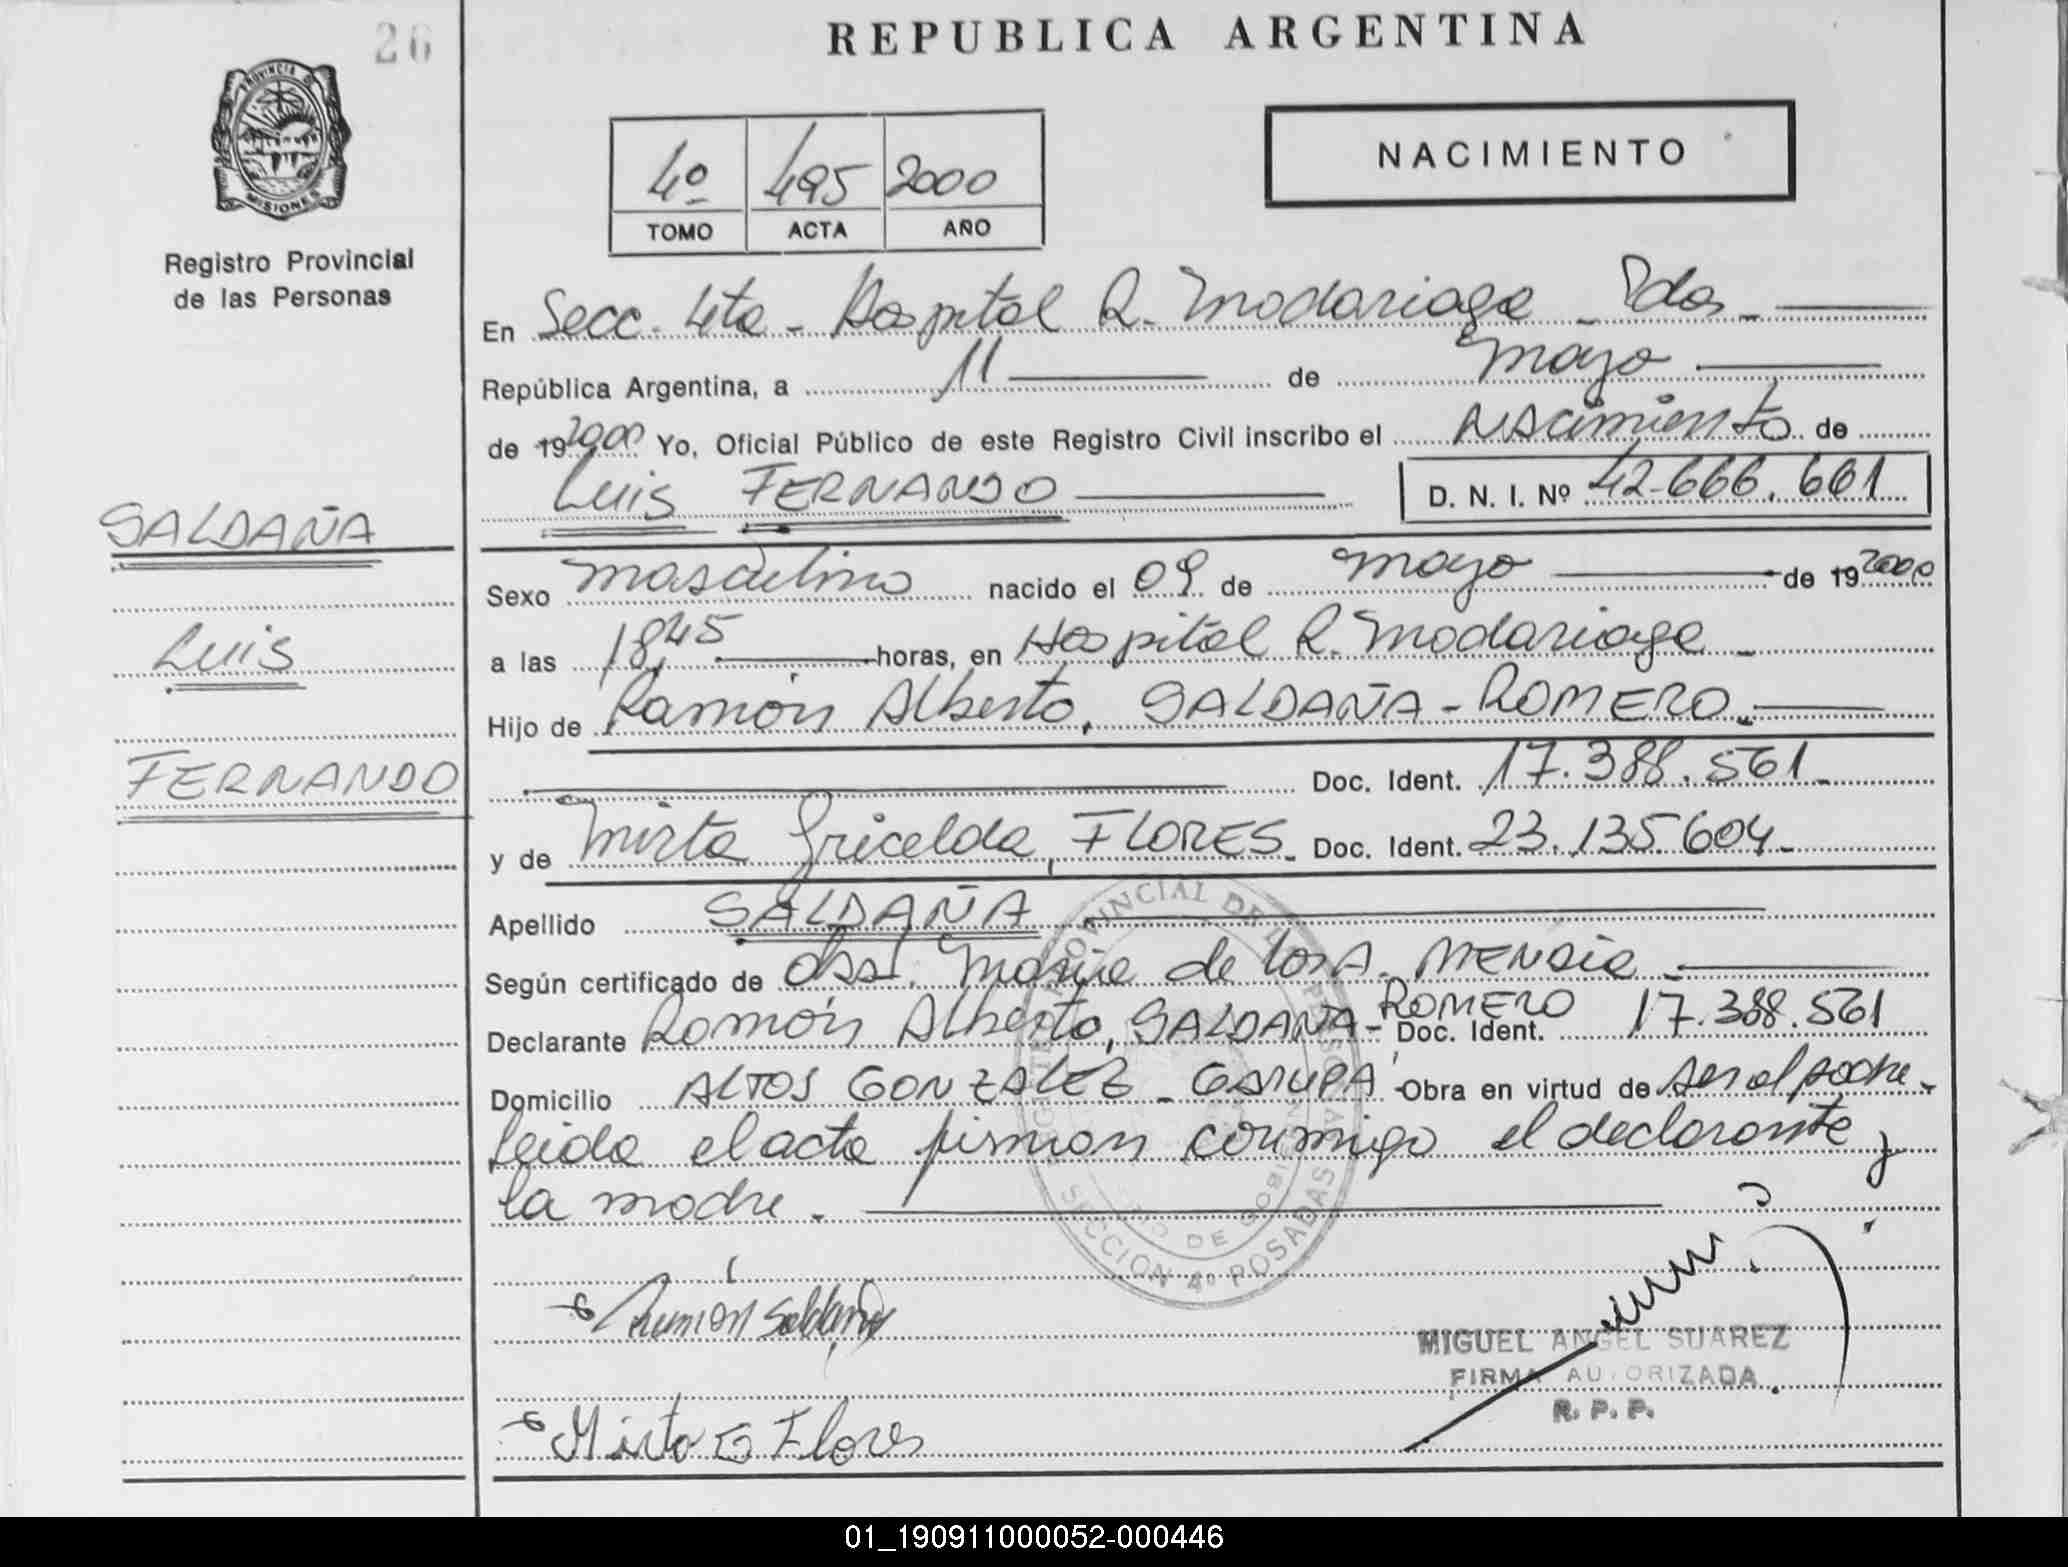 26
REPUBLICA ARGENTINA
PROVINCIA DE
MISIONES
Registro Provincial
de las Personas
4º 495 2000
TOMO ACTA AÑO
NACIMIENTO
En Secc. 4ta - Hospital R. Madariaga - Pdas -
República Argentina, a 11 de mayo
de 19 2000 Yo, Oficial Público de este Registro Civil inscribo el nacimiento de
Luis FERNANDO D. N. I. Nº 42.666.661
SALDAÑA
Luis
FERNANDO
Sexo masculino nacido el 09 de mayo de 19 2000
a las 18,45 horas, en Hospital R. Madariaga -
Hijo de Ramón Alberto, SALDAÑA - ROMERO -
Doc. Ident. 17.388.561 -
y de Mirta Gricelda, FLORES - Doc. Ident. 23.135.604 -
Apellido SALDAÑA
Según certificado de Dra. Maria de los A. -
Declarante Ramón Alberto, SALDAÑA - ROMERO Doc. Ident. 17.388.561
Domicilio ALTOS GONZALEZ - GARUPA Obra en virtud de ser el padre -
leida el acta firman conmigo el declarante y
la madre -
REGISTRO PROVINCIAL DE LAS PERSONAS
SECCION 4º POSADAS
Ramón Saldaña
Mirta G Flores
MIGUEL ANGEL SUAREZ
FIRMA AUTORIZADA
R. P. P.
01_190911000052-000446